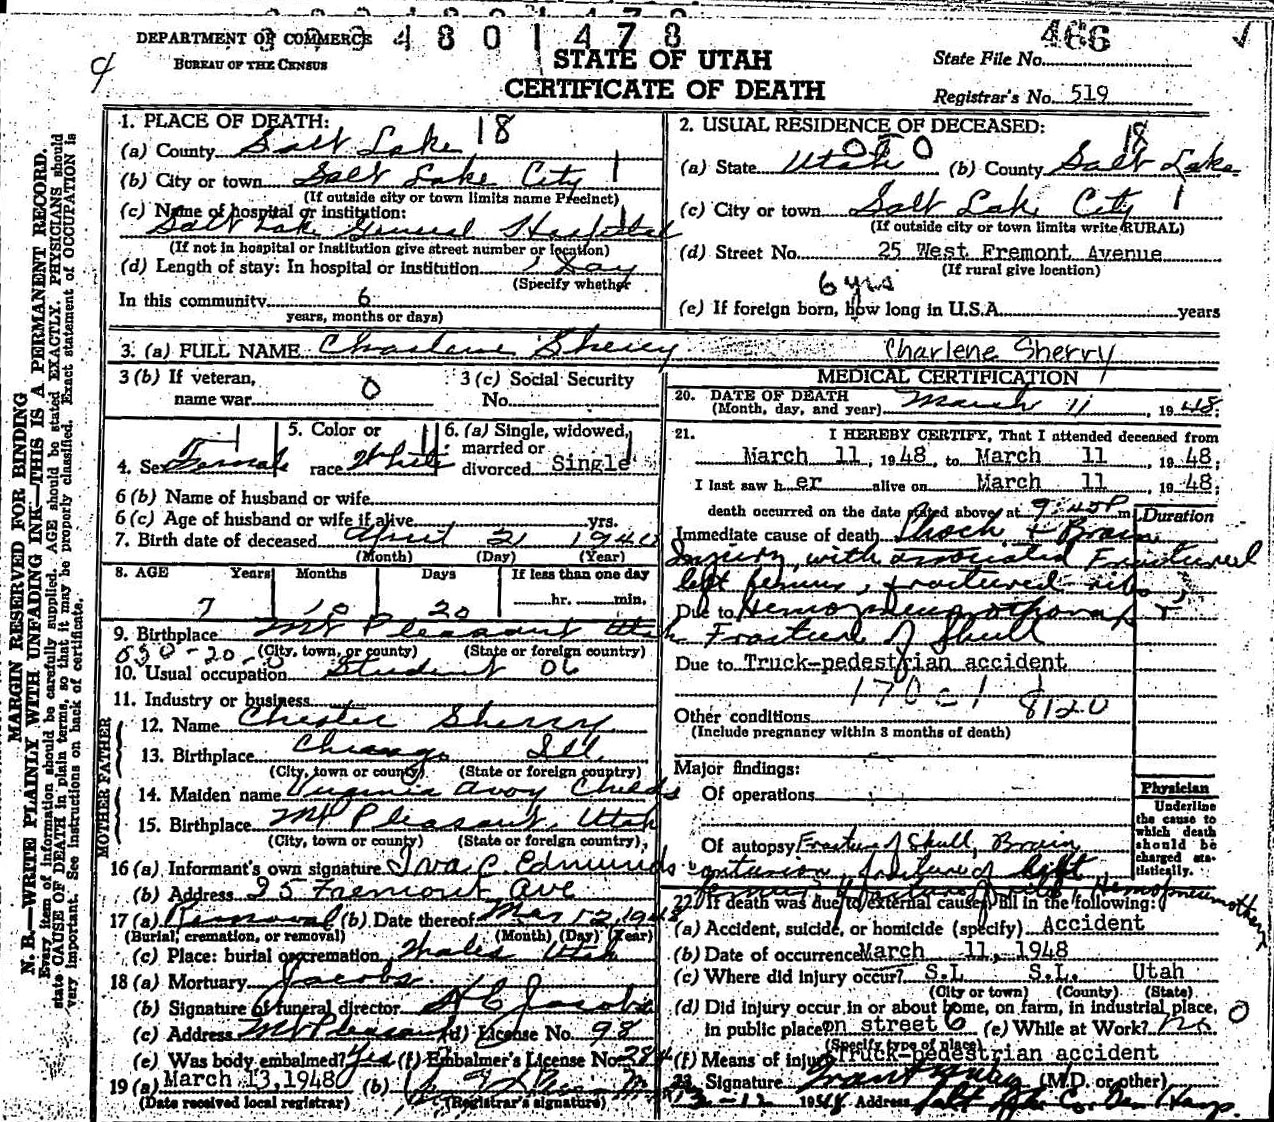 4801478
DEPARTMENT OF COMMERCE
BUREAU OF THE CENSUS
STATE OF UTAH
CERTIFICATE OF DEATH
466
State File No.
Registrar's No. 519
MARGIN RESERVED FOR BINDING
N. B.—WRITE PLAINLY WITH UNFADING INK—THIS IS A PERMANENT RECORD.
Every item of information should be carefully supplied. AGE should be stated EXACTLY. PHYSICIANS should
state CAUSE OF DEATH in plain terms, so that it may be properly classified. Exact statement of OCCUPATION is
very important. See instructions on back of certificate.
1. PLACE OF DEATH: 18
(a) County Salt Lake
(b) City or town Salt Lake City 1
(If outside city or town limits name Precinct)
(c) Name of hospital or institution:
Salt Lake General Hospital
(If not in hospital or institution give street number or location)
(d) Length of stay: In hospital or institution 1 day
(Specify whether
In this community 6
years, months or days)
2. USUAL RESIDENCE OF DECEASED:
(a) State Utah (b) County Salt Lake 18
(c) City or town Salt Lake City 1
(If outside city or town limits write RURAL)
(d) Street No. 25 West Fremont Avenue
(If rural give location)
6 yrs
(e) If foreign born, how long in U.S.A. years
3. (a) FULL NAME Charlene Sherry Charlene Sherry
3 (b) If veteran, name war 0
3 (c) Social Security No.
4. Sex Female
5. Color or race White
6. (a) Single, widowed, married or divorced Single
6 (b) Name of husband or wife
6 (c) Age of husband or wife if alive yrs.
7. Birth date of deceased April 21 1940
(Month) (Day) (Year)
8. AGE Years Months Days If less than one day
7 10 20 hr. min.
9. Birthplace Mt Pleasant Utah
(City, town, or county) (State or foreign country)
10. Usual occupation Student 06
11. Industry or business
FATHER
12. Name Chester Sherry
13. Birthplace Chicago Ill.
(City, town or county) (State or foreign country)
MOTHER
14. Maiden name Virginia Avoy Childs
15. Birthplace Mt Pleasant, Utah
(City, town or county) (State or foreign country)
16 (a) Informant's own signature Iva C Edmunds
(b) Address 25 Fremont Ave
17 (a) Removal (b) Date thereof Mar 12, 1948
(Burial, cremation, or removal) (Month) (Day) (Year)
(c) Place: burial or cremation Wales Utah
18 (a) Mortuary Jacobs
(b) Signature of funeral director H C Jacobs
(c) Address Mt Pleasant (d) License No. 98
(e) Was body embalmed? Yes (f) Embalmer's License No. 384
19 (a) March 13, 1948 (b)
(Date received local registrar) (Registrar's signature)
MEDICAL CERTIFICATION
20. DATE OF DEATH
(Month, day, and year) March 11, 1948;
21. I HEREBY CERTIFY, That I attended deceased from
March 11, 1948, to March 11, 1948;
I last saw her alive on March 11, 1948;
death occurred on the date stated above at 9:45P m.
Duration
Immediate cause of death Shock & Brain
Injury, with associated Fractured
left femur, fractured ribs,
Due to Hemopneumothorax
Fracture of Skull
Due to Truck-pedestrian accident
8120
Other conditions
(Include pregnancy within 3 months of death)
Major findings:
Of operations
Of autopsy Fracture of Skull, Brain
contusion, fracture of left
femur, fracture of ribs, Hemopneumothorax
Physician
Underline the cause to which death should be charged statistically.
22. If death was due to external causes, fill in the following:
(a) Accident, suicide, or homicide (specify) Accident
(b) Date of occurrence March 11, 1948
(c) Where did injury occur? S.L. S.L. Utah
(City or town) (County) (State)
(d) Did injury occur in or about home, on farm, in industrial place,
in public place? on street 6 (e) While at Work? no 0
(Specify type of place)
(f) Means of injury Truck-pedestrian accident
23. Signature (M.D. or other)
1948 Address Salt Lake Co. Gen Hosp.